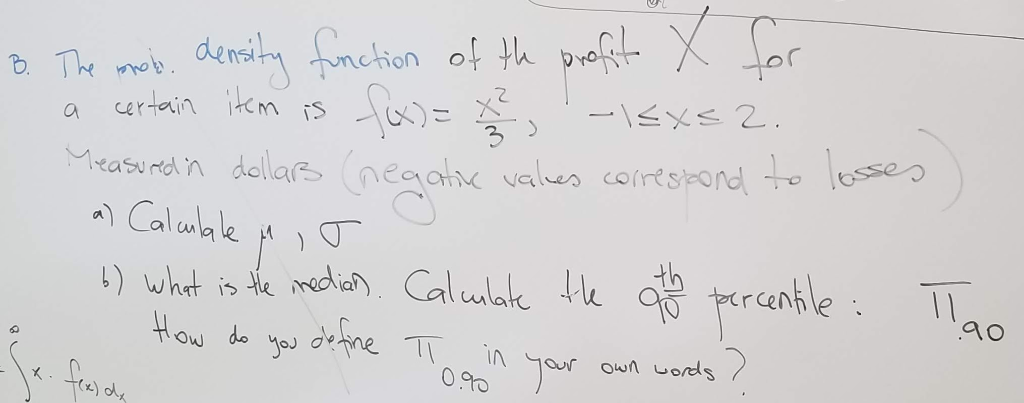 B. The prob. density function of th profit X for
a certain item is f(x) = x²/3, -1≤x≤2.
Measured in dollars (negative values correspond to losses)
a) Calculate μ, σ
b) What is the median. Calculate the 90th percentile: π.90
How do you define π0.90 in your own words?
∫x. f(x)dx